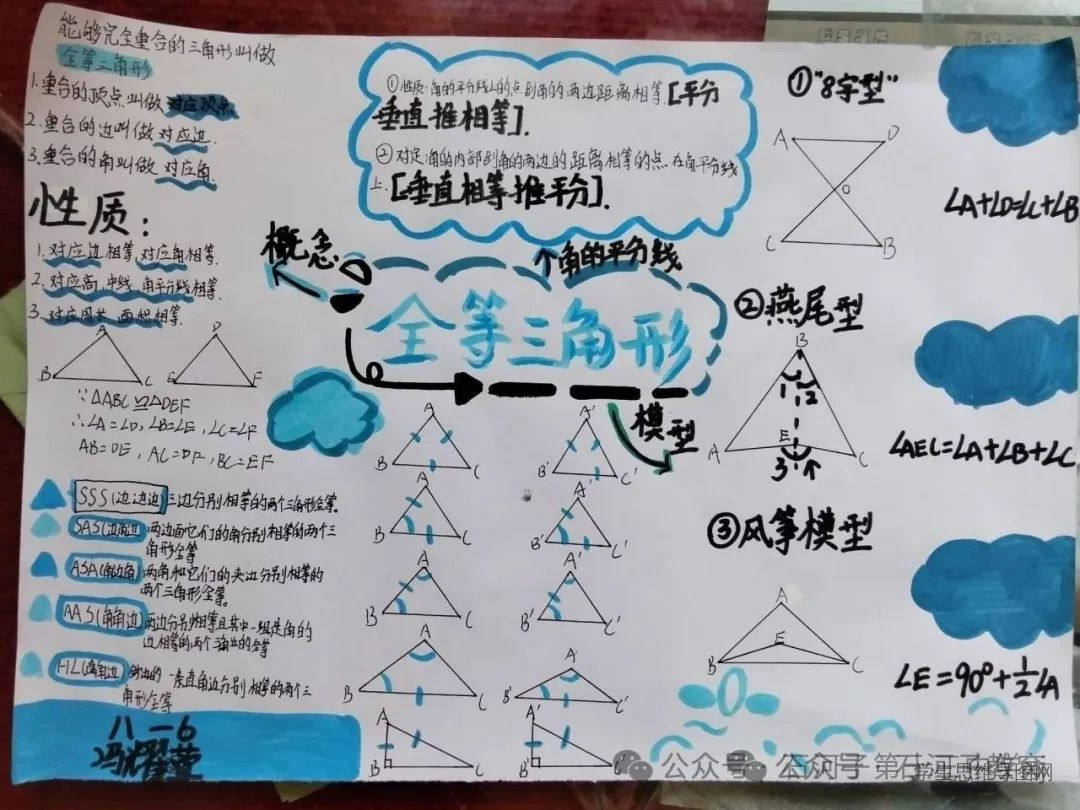 能够完全重合的三角形叫做
全等三角形
1.重合的顶点叫做 对应顶点
2.重合的边叫做 对应边.
3.重合的角叫做 对应角.
性质:
1.对应边相等,对应角相等.
2.对应高,中线,角平分线相等.
3.对应周长,面积相等.
A
B
C
D
E
F
∵△ABC≌△DEF
∴∠A=∠D,∠B=∠E,∠C=∠F
AB=DE,AC=DF,BC=EF
SSS(边边边)三边分别相等的两个三角形全等.
SAS(边角边)两边面它们的角分别相等的两个三
角形全等
ASA(角边角)两角和它们的夹边分别相等的
两个三角形全等.
AAS(角角边)两边分别相等且其中一组是角的
边相等的两个
的全等
HL
的一条直角边分别相等的两个三
角形全等
八一6
冯耀萱
①性质:角的平分线上的点到角的两边距离相等.[平分
垂直推相等].
②对定:角的内部到角的两边的距离相等的点在角平分线
上.[垂直相等推平分].
概念
角的平分线
全等三角形
模型
A
B
C
A'
B'
C'
A
B
C
A'
B'
C'
A
B
C
A'
B'
C'
A
B
C
A
B'
C'
A
B
C
A'
B'
C'
①"8字型"
A
D
O
C
B
∠A+∠D=∠C+∠B
②燕尾型
B
1
2
A
E
3
C
∠AEC=∠A+∠B+∠C
③风筝模型
A
E
B
C
∠E=90°+½∠A
公众号
公众号
学生思维导图网